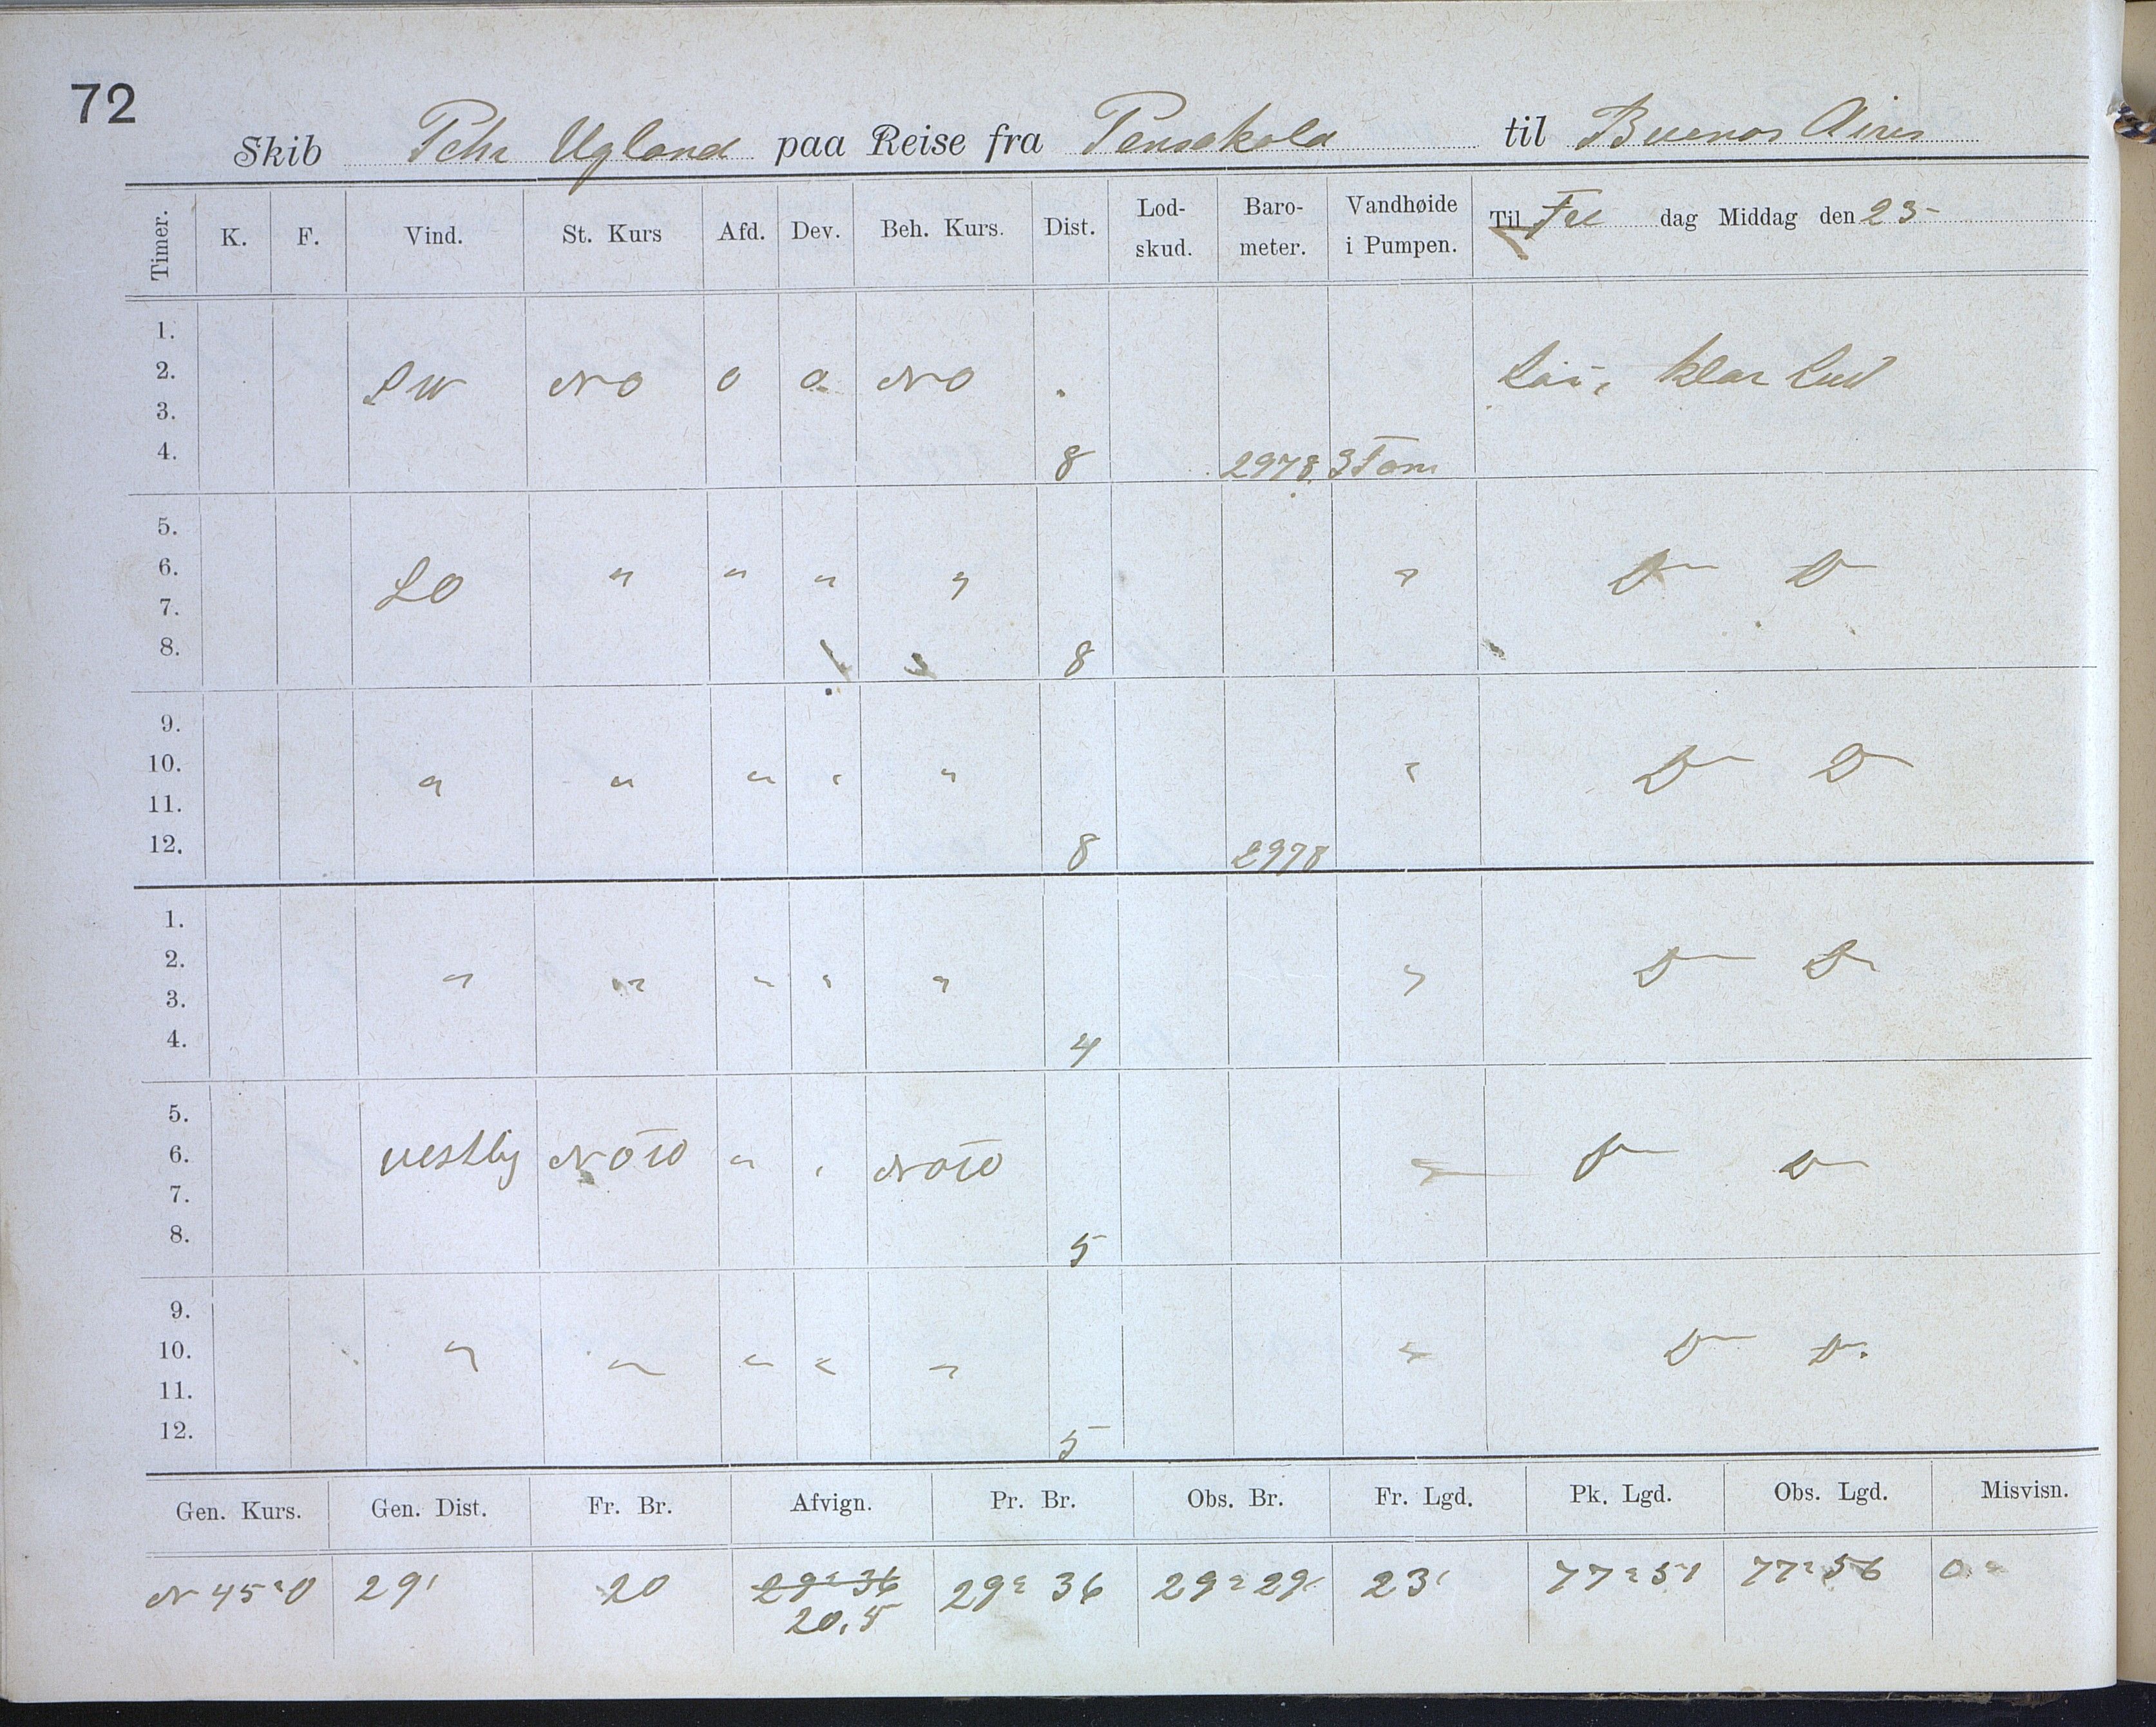 72
Skib Pehr Ugland paa Reise fra Pensakola til Buenos Aires
Timer. K. F. Vind. St. Kurs Afd. Dev. Beh. Kurs. Dist. Lod-skud. Baro-meter. Vandhøide i Pumpen. Til Fre dag Middag den 23
1.
2. SW NO 0 0 NO klar Luft
3.
4. 8 2978 3 Tom
5.
6. SO " " " " " D D
7.
8. 8
9.
10. " " " " " " D D
11.
12. 8 2978
1.
2. " " " " " " D D
3.
4. 4
5.
6. vestlig NOtO " " NOtO " D D
7.
8. 5
9.
10. " " " " " " D D.
11.
12. 5
Gen. Kurs. Gen. Dist. Fr. Br. Afvign. Pr. Br. Obs. Br. Fr. Lgd. Pk. Lgd. Obs. Lgd. Misvisn.
N 45° O 29' 20 29° 36 29° 36 29° 29 23' 77° 51 77° 56 0°
20,5